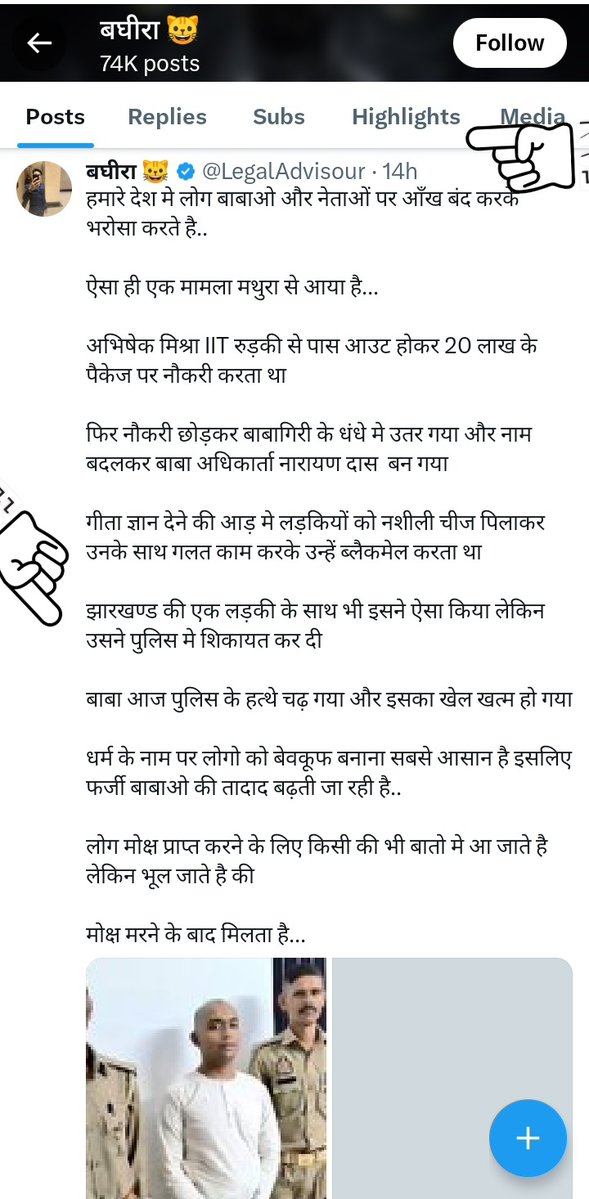 बघीरा 😺
74K posts
Follow
Posts Replies Subs Highlights Media
बघीरा 😺 @LegalAdvisour · 14h
हमारे देश मे लोग बाबाओ और नेताओं पर आँख बंद करके
भरोसा करते है..
ऐसा ही एक मामला मथुरा से आया है...
अभिषेक मिश्रा IIT रुड़की से पास आउट होकर 20 लाख के
पैकेज पर नौकरी करता था
फिर नौकरी छोड़कर बाबागिरी के धंधे मे उतर गया और नाम
बदलकर बाबा अधिकार्ता नारायण दास बन गया
गीता ज्ञान देने की आड़ मे लड़कियों को नशीली चीज पिलाकर
उनके साथ गलत काम करके उन्हें ब्लैकमेल करता था
झारखण्ड की एक लड़की के साथ भी इसने ऐसा किया लेकिन
उसने पुलिस मे शिकायत कर दी
बाबा आज पुलिस के हत्थे चढ़ गया और इसका खेल खत्म हो गया
धर्म के नाम पर लोगो को बेवकूफ बनाना सबसे आसान है इसलिए
फर्जी बाबाओ की तादाद बढ़ती जा रही है..
लोग मोक्ष प्राप्त करने के लिए किसी की भी बातो मे आ जाते है
लेकिन भूल जाते है की
मोक्ष मरने के बाद मिलता है...